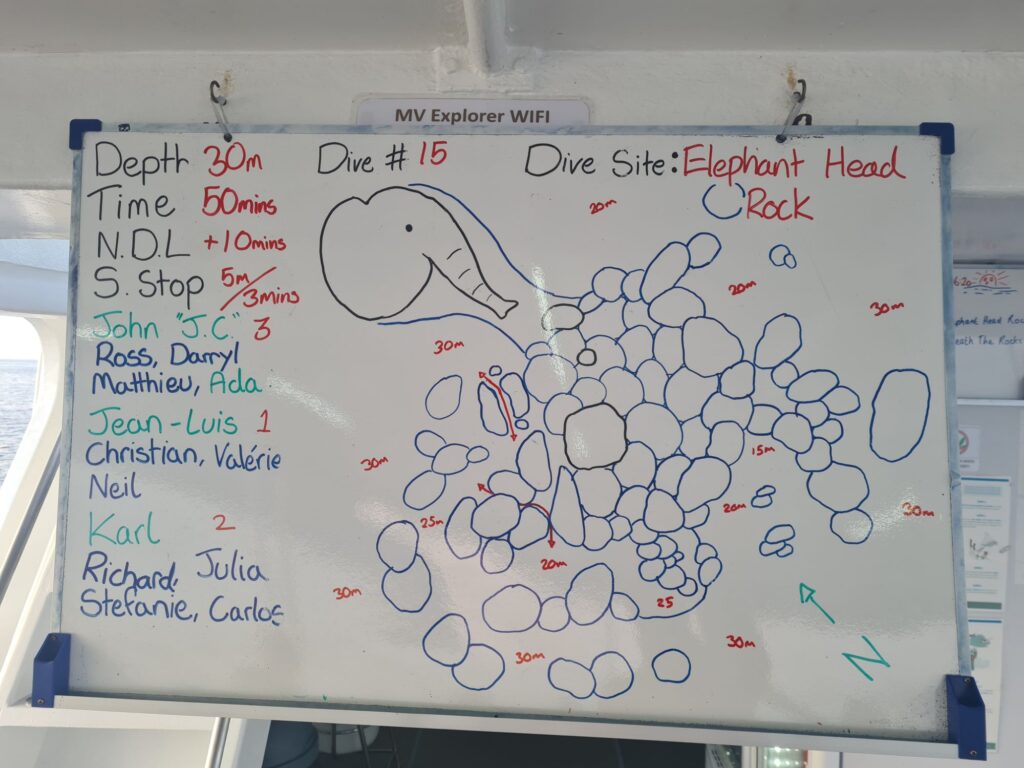 MV Explorer WIFI
Depth 30m Dive # 15 Dive Site: Elephant Head
Rock
Time 50mins
N.D.L +10mins
S. Stop 5m/3mins
John "J.C." 3
Ross, Darryl
Matthieu, Ada
Jean-Luis 1
Christian, Valérie
Neil
Karl 2
Richard, Julia
Stefanie, Carlos
20m
20m
30m
30m
15m
30m
20m
30m
25m
20m
30m
25
30m
30m
N
6:20
phant Head Roc
eath The Rocks